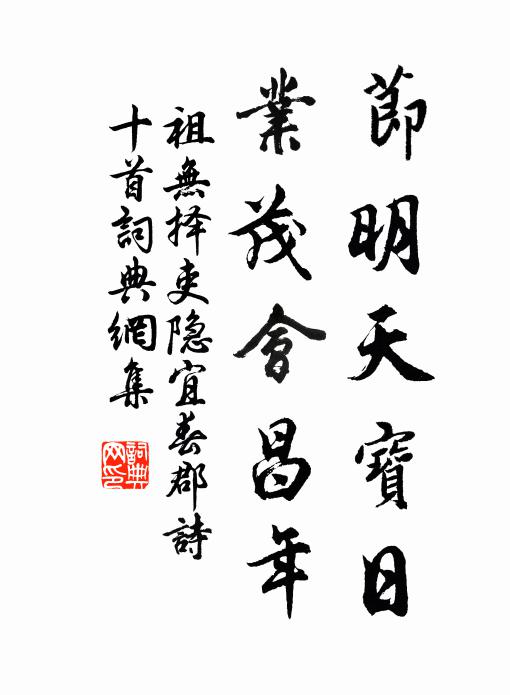 節明天寶日
業茂會昌年
祖無择吏隐宜春郡詩
十首詞典網集
詞典
网印